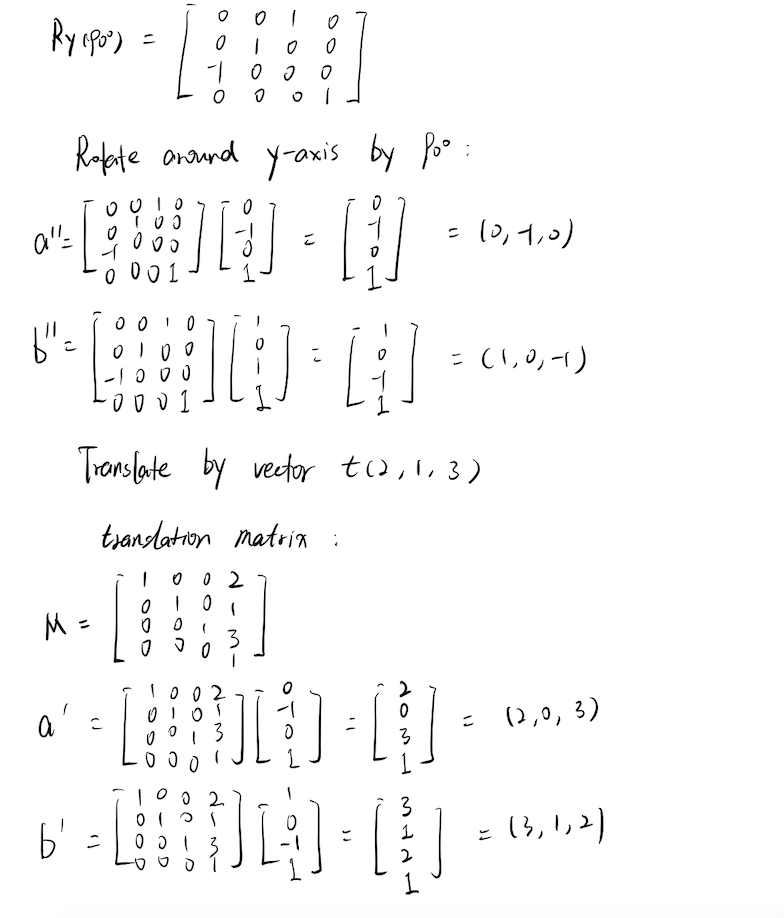 Ry(90°) = [ 0 0 1 0
0 1 0 0
-1 0 0 0
0 0 0 1 ]
Rotate around y-axis by 90° :
a'' = [ 0 0 1 0 ; 0 1 0 0 ; -1 0 0 0 ; 0 0 0 1 ] [ 0 ; -1 ; 0 ; 1 ] = [ 0 ; -1 ; 0 ; 1 ] = (0, -1, 0)
b'' = [ 0 0 1 0 ; 0 1 0 0 ; -1 0 0 0 ; 0 0 0 1 ] [ 1 ; 0 ; 1 ; 1 ] = [ 1 ; 0 ; -1 ; 1 ] = (1, 0, -1)
Translate by vector t(2, 1, 3)
translation matrix :
M = [ 1 0 0 2
0 1 0 1
0 0 1 3
0 0 0 1 ]
a' = [ 1 0 0 2 ; 0 1 0 1 ; 0 0 1 3 ; 0 0 0 1 ] [ 0 ; -1 ; 0 ; 1 ] = [ 2 ; 0 ; 3 ; 1 ] = (2, 0, 3)
b' = [ 1 0 0 2 ; 0 1 0 1 ; 0 0 1 3 ; 0 0 0 1 ] [ 1 ; 0 ; -1 ; 1 ] = [ 3 ; 1 ; 2 ; 1 ] = (3, 1, 2)